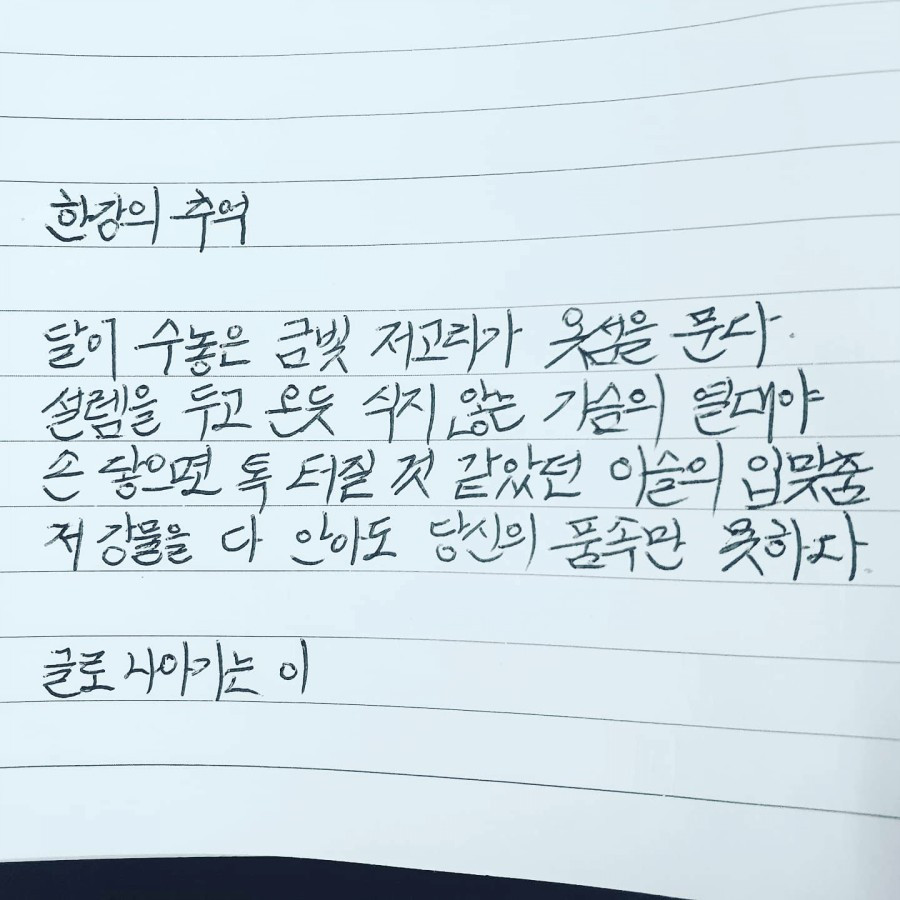 한강의 추억
달이 수놓은 금빛 저고리가 옷섶을 문다.
설렘을 두고 온듯 식지 않는 가슴의 열대야
손 닿으면 톡 터질 것 같았던 이슬의 입맞춤
저 강물을 다 안아도 당신의 품속만 못하다.
글로 나아가는 이